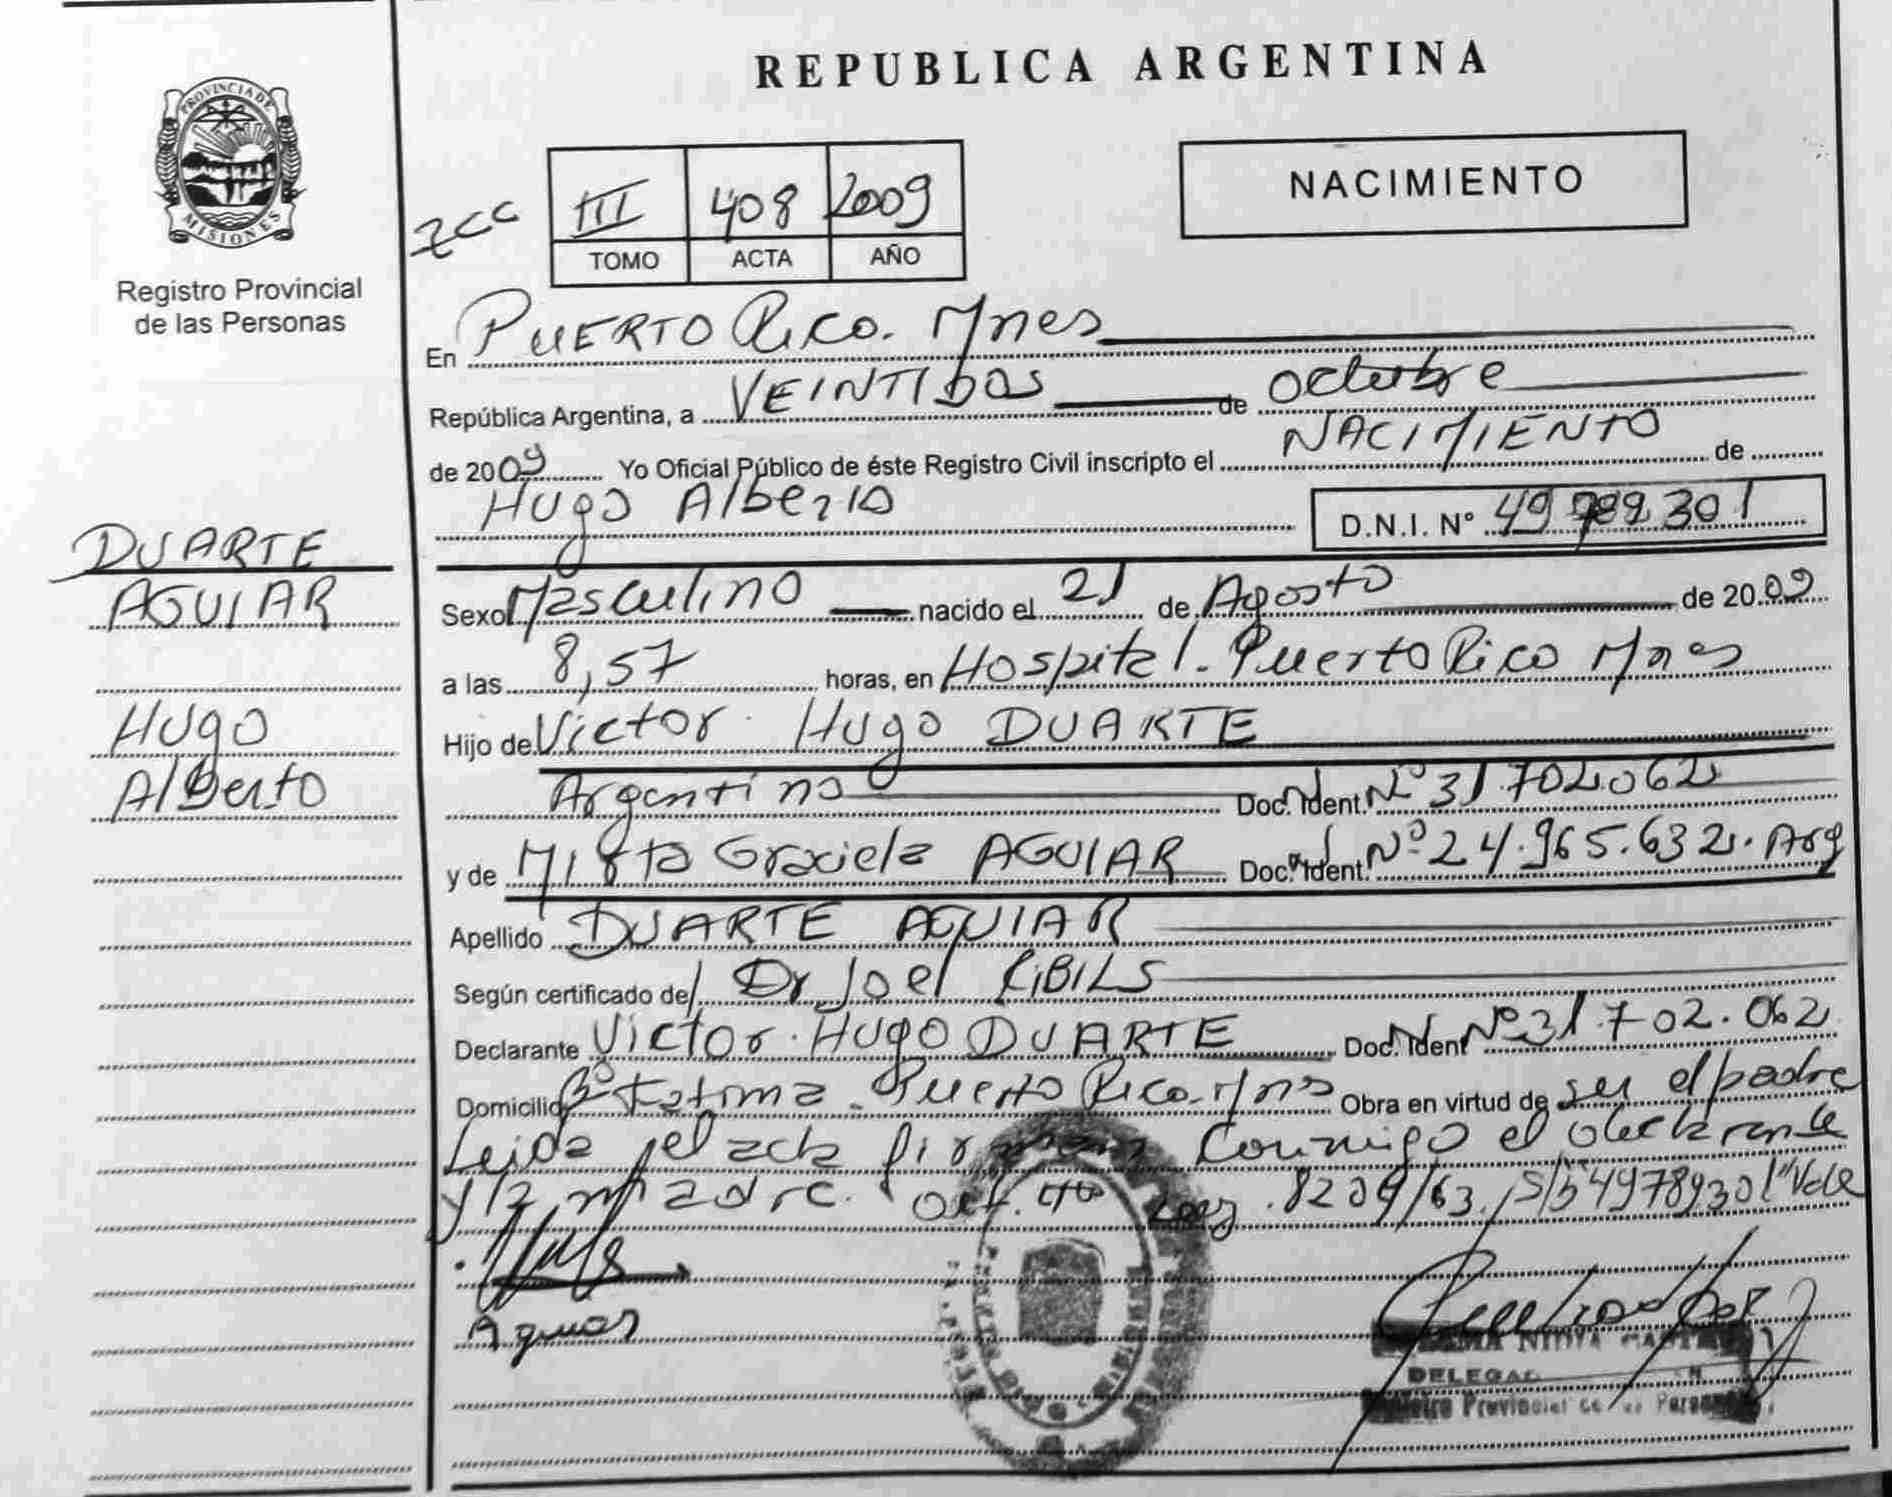 REPUBLICA ARGENTINA
PROVINCIA DE
MISIONES
Registro Provincial
de las Personas
III 408 2009
TOMO ACTA AÑO
NACIMIENTO
En PUERTO Rico. Mnes
República Argentina, a VEINTIDOS de octubre
de 2009 Yo Oficial Público de éste Registro Civil inscripto el NACIMIENTO de
Hugo Alberto D.N.I. Nº 49 301
DUARTE
AGUIAR
Hugo
Alberto
Sexo Masculino nacido el 21 de Agosto de 2009
a las 8,57 horas, en Hospital. Puerto Rico Mnes
Hijo de Victor Hugo DUARTE
Argentino Doc. Ident. Nº 31.702.062
y de Mirta Graciela AGUIAR Doc. Ident. Nº 24.965.632. Arg
Apellido DUARTE AGUIAR
Según certificado del Dr Joel RIBILS
Declarante Victor Hugo DUARTE Doc. Ident Nº 31.702.062
Domicilio Bº Fatima. Puerto Rico. Mns Obra en virtud de ser el padre
Leida el acta firman conmigo el declarante
y la madre. 8209/63. S/b 49789301 "Vale
Aguiar
DELEGAD
Registro Provincial de las Personas